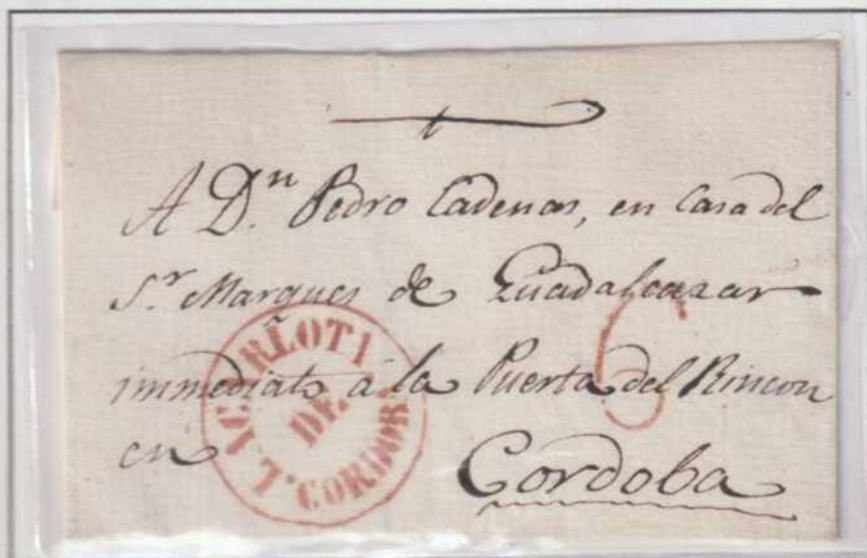 A D.n Pedro Cadenas, en Casa del
S.r Marques de Guadalcazar
immediato à la Puerta del Rincon
en Cordoba
LA CARLOTA
DE
CORDOBA
6